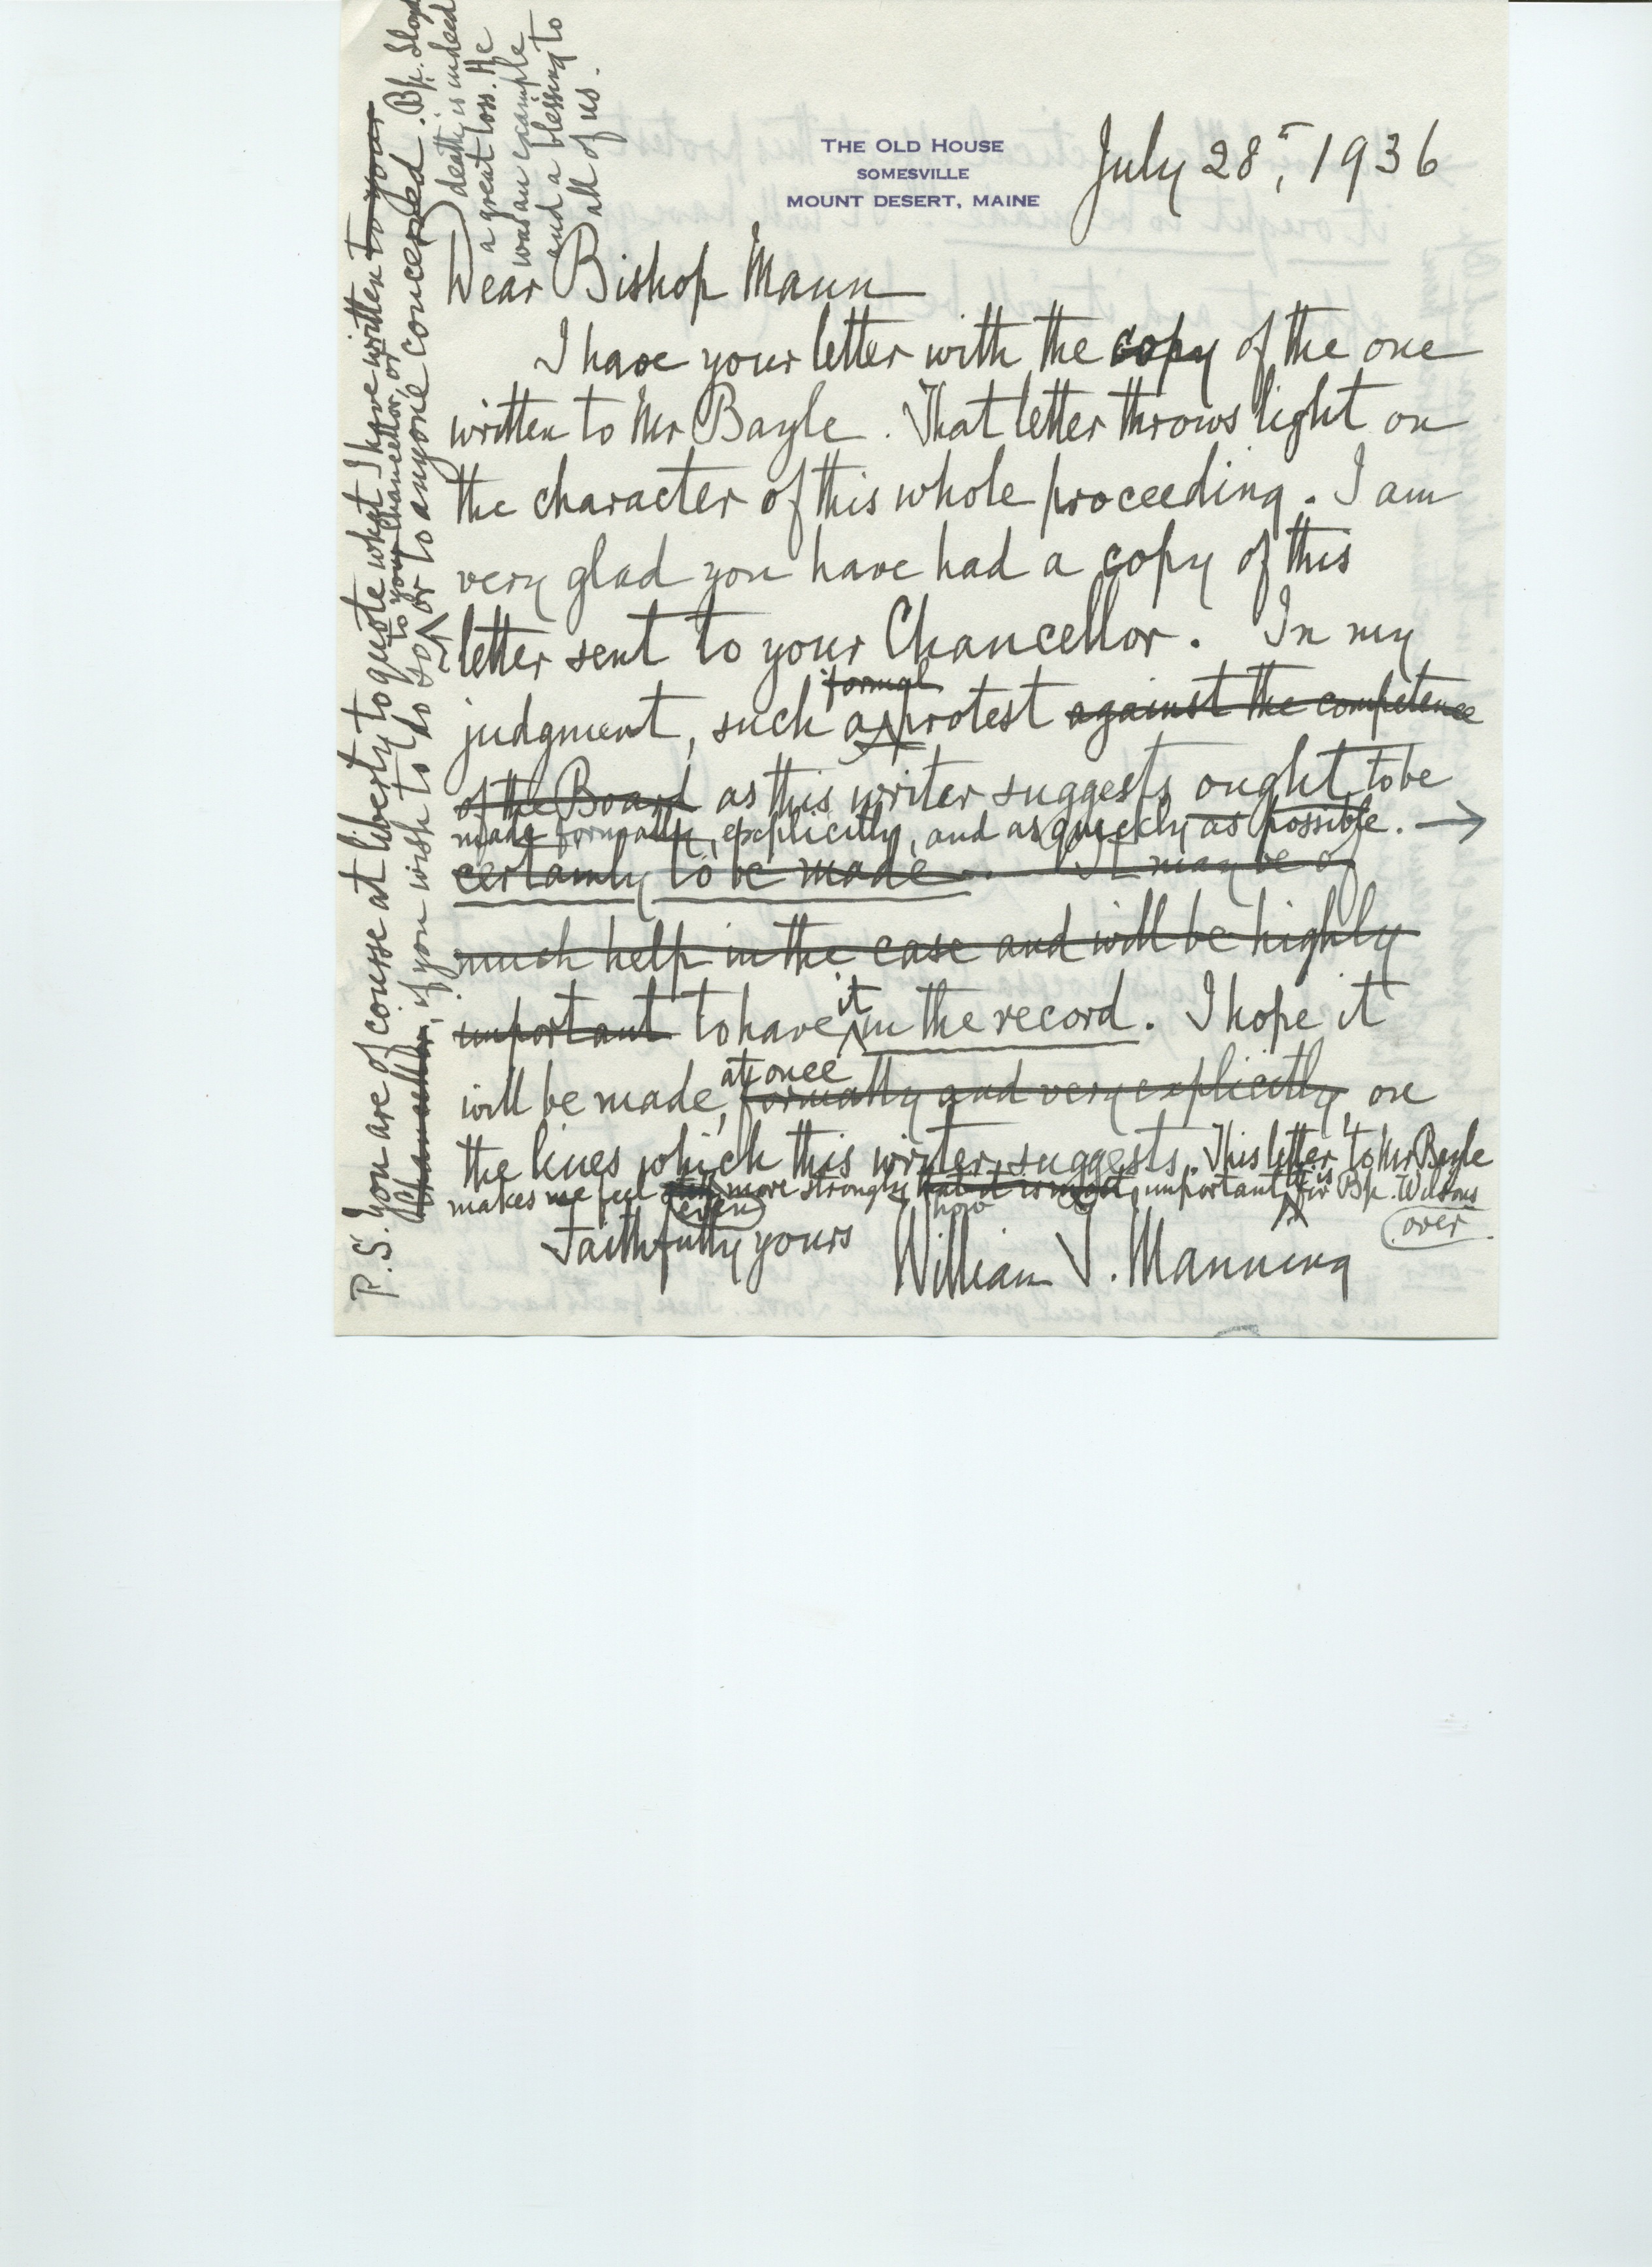 THE OLD HOUSE
SOMESVILLE
MOUNT DESERT, MAINE
July 28, 1936
Dear Bishop Mann
I have your letter with the copy of the one
written to Mr Bayle. That letter throws light on
the character of this whole proceeding. I am
very glad you have had a copy of this
letter sent to your Chancellor. In my
formal
judgment, such a protest against the competence
of the Board as this writer suggests ought to be
made formally, explicitly, and as quickly as possible. →
certainly to be made. It may be of
much help in the case and will be highly
it
important to have in the record. I hope it
at once
will be made, formally and very explicitly, on
the lines which this writer suggests. This letter to Mr Bayle
makes me feel still more strongly that it is most important for Bp. Wilsons
even how it is
over
Faithfully yours William T. Manning
P.S. You are of course at liberty to quote what I have written to your
to your Chancellor, or
Chancellor, if you wish to do so or to anyone concerned. Bp. Lloyd
death is indeed
a great loss. He
was an example
and a blessing to
all of us.